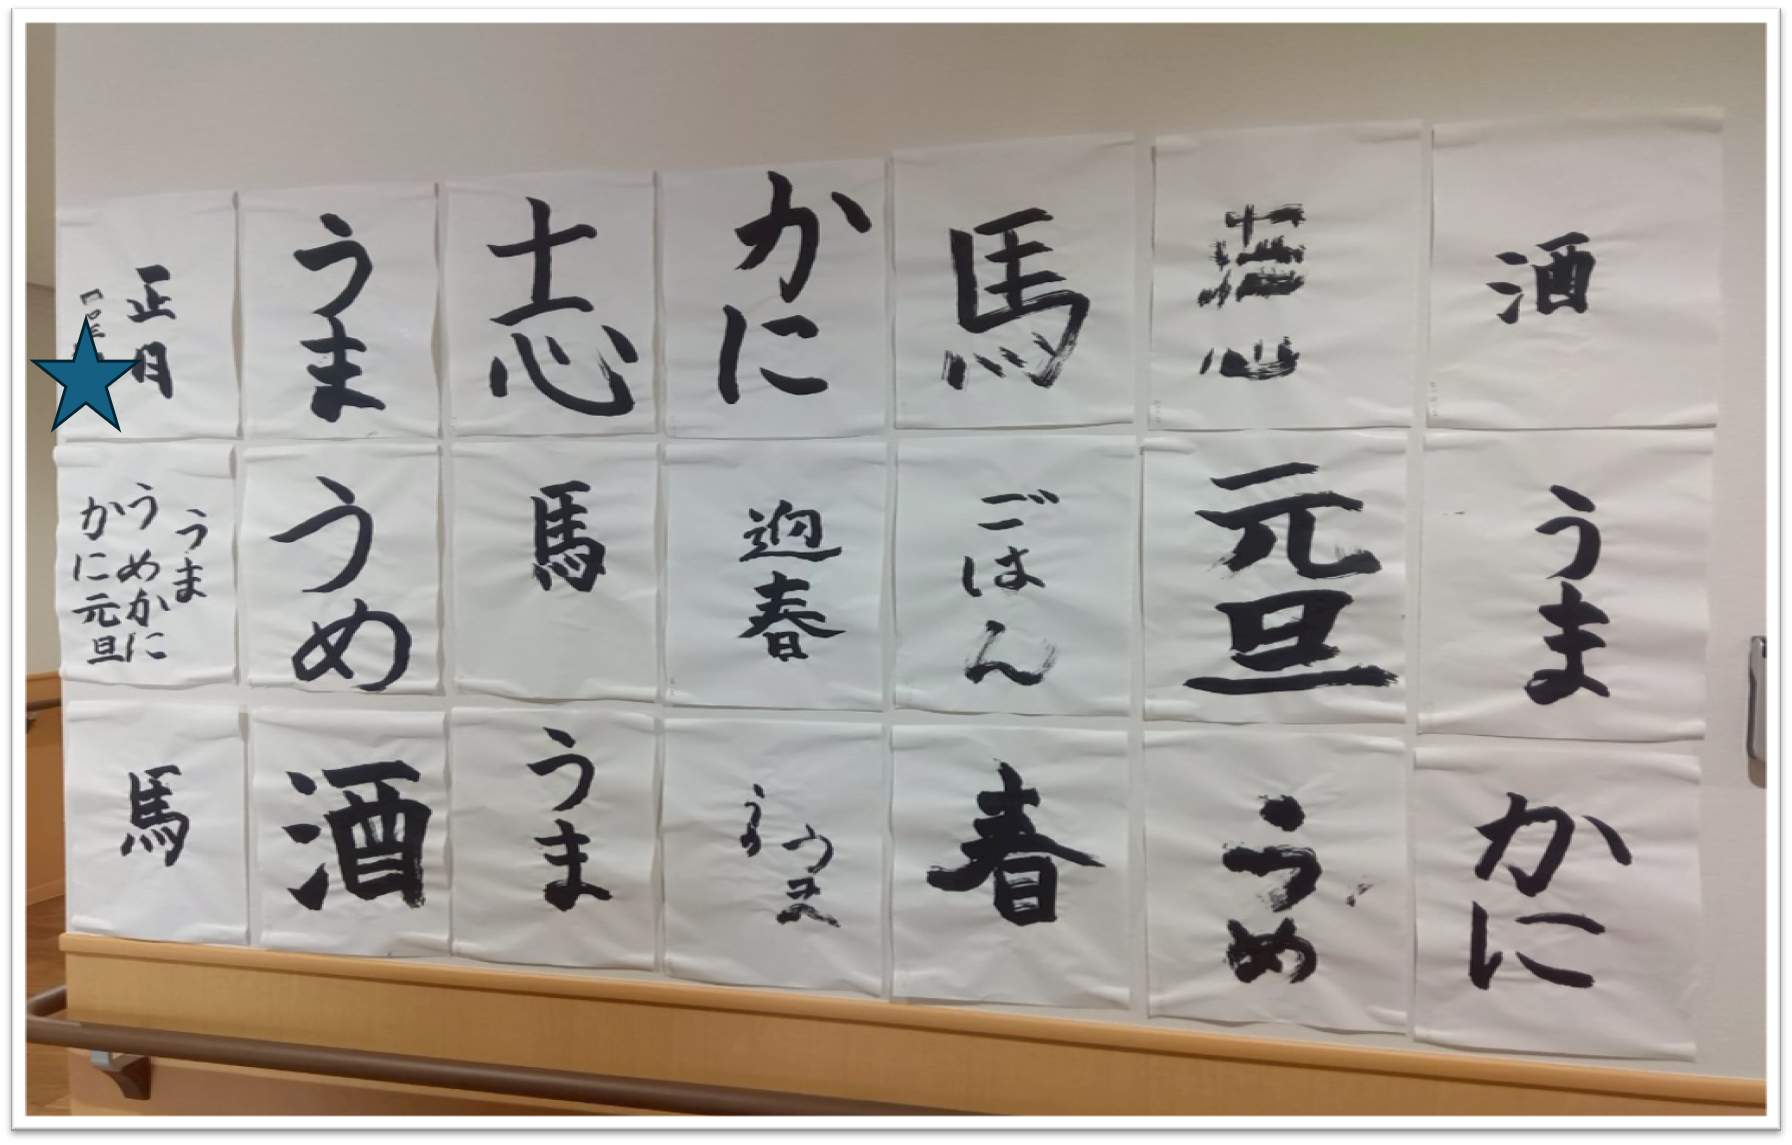 正月
うま
志
かに
馬
酒
うま
うめかに
かに元旦
うめ
馬
迎春
ごはん
元旦
うま
馬
酒
うま
うま
春
うめ
かに